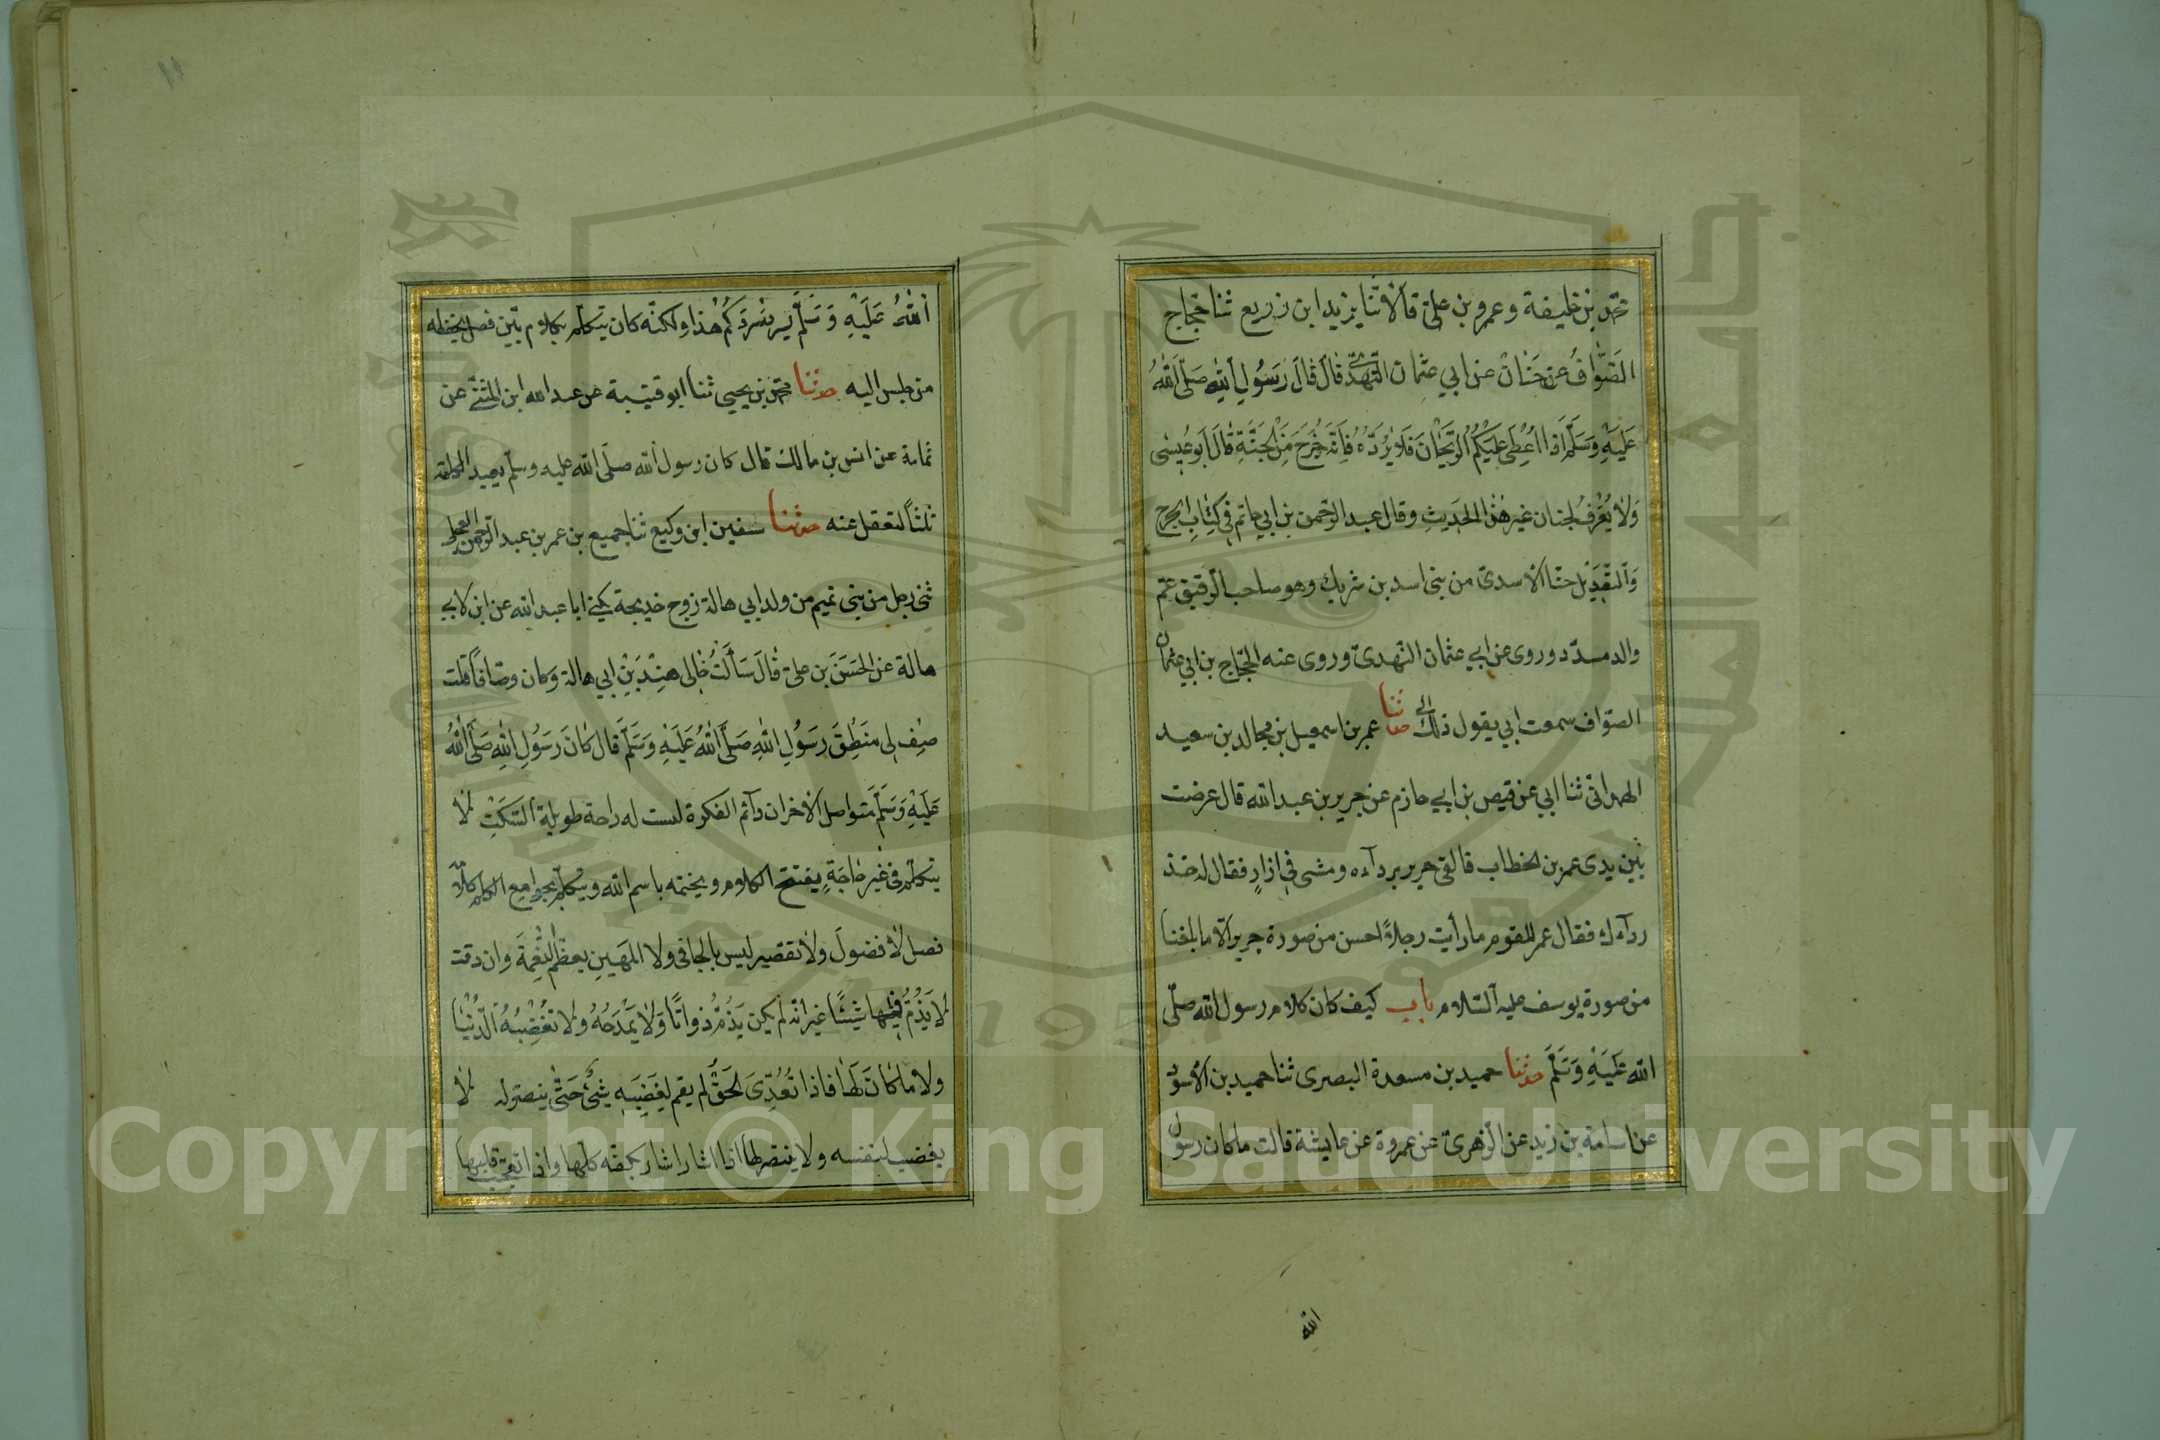 محمد بن خليفة وعمرو بن علي قالا ثنا يزيد ابن زريع ثنا حجاج
الصَّوّافُ عن حَنان عن ابي عثمان النّهديّ قال قَالَ رَسُولِ الله صَلَّى اللهُ
عَلَيْهِ وَسَلَّمَ اذا اُعْطِى عليكُمُ الرَّيْحَانَ فَلا يَرُدّهُ فَاِنّهَ خَرَجَ مِنَ الْجَنَّةِ قَالَ اَبو عِيسٰى
وَلا يُعْرَفُ لحنان غير هٰذا الحَديثِ وقال عبد الرحمن بن ابي حاتم في كِتَابِ الجرح
وَالتَّعْديْل حنان الاسديّ من بني اسد بن شريك وهو صاحب الرقيق عم
والد مسدّد وروى عن ابي عثمان النّهديّ وروى عنه الحجّاج بن ابي عثمان
الصوّاف سمعت ابي يقول ذلك حدثنا عمر بن اسمعيل بن مجالد بن سعيد
الهمدانى ثنا ابي عن قيس بن ابي حازم عن جرير بن عبد الله قال عرضت
بَيْن يدى عمر بن الخطاب فالقى جرير ردآءه ومشى في ازارٍ فقال له خذ
ردآءك فقال عمر للقوم ما رأيت رجلاً احسن من صورة جرير الّا ما بلغنا
من صورة يوسف عليه السّلام باب كيف كان كلام رسول الله صلّى
الله عَلَيْهِ وَسَلَّمَ حدثنا حميد بن مسعدة البصرى ثنا حميد بن الاسود
عن اسامة بن زيد عن الزهريّ عن عروة عن عايشة قالت ما كان رسول
الله
اللهُ عَلَيْهِ وَسَلَّمَ يسرد سَرْدَكُمْ هٰذا ولكنّه كان يتكلّم بكلام بَيّن فصل يحفظه
من جلس اليه حدثنا محمد بن يحيى ثنا ابو قتيبة عن عبد الله ابن المثنّى عن
ثمامة عن انس بن مالك قال كان رسول الله صلّى الله عليه وسلّم يعيد الكلمة
ثلثاً لتعقل عنه حدثنا سفين ابن وكيع ثنا جميع بن عمر بن عبد الرحمن العجلى
ثنى رجل من بني تميم من ولد ابي هالة زوج خديجة يكنى ابا عبد الله عن ابن لابي
هالة عن الحَسَنَ بن علىّ قَالَ سَأَلَتُ خٰالِى هِنْدَ بَنِ ابي هالة وكان وصّافاً قلت
صِف لى مَنطِقَ رَسَوُلِ اللهِ صَلَّى اللهُ عَلَيْهِ وَسَلَّمَ قال كَانَ رَسَوُلِ اللهِ صَلَّى اللهُ
عَلَيْهِ وَسَلَّمَ متواصل الاحزان دآئم الفكرة ليست له راحة طويلة السّكَتِ لا
يتكلّم في غَيْرَ حَاجَةٍ يفتتح الكلام ويختمه باسم الله ويتكلّم بجوامع الكلم كلامه
فصل لا فضولَ ولا تقصير ليس بالجافى ولا المَهين يعظّم النّعْمَةَ وان دقت
لا يَذُمُّ مِنْها شَيْئًا غير انه لم يكن يَذُمّ ذواقًا وَلا يَمْدَحُهُ ولا تُغْضِبُهُ الدُّنْيَا
ولا ما كَانَ لهَا فاذا تُعُدِّىَ الحَقُّ لم يقم لِغَضَبِهِ شَىْءٌ حَتَّى ينتصر له لا
يغضب لنفسه ولا ينتصر لها اذا اشار اشار بكفّه كلّها واذا تعجّب قلبها